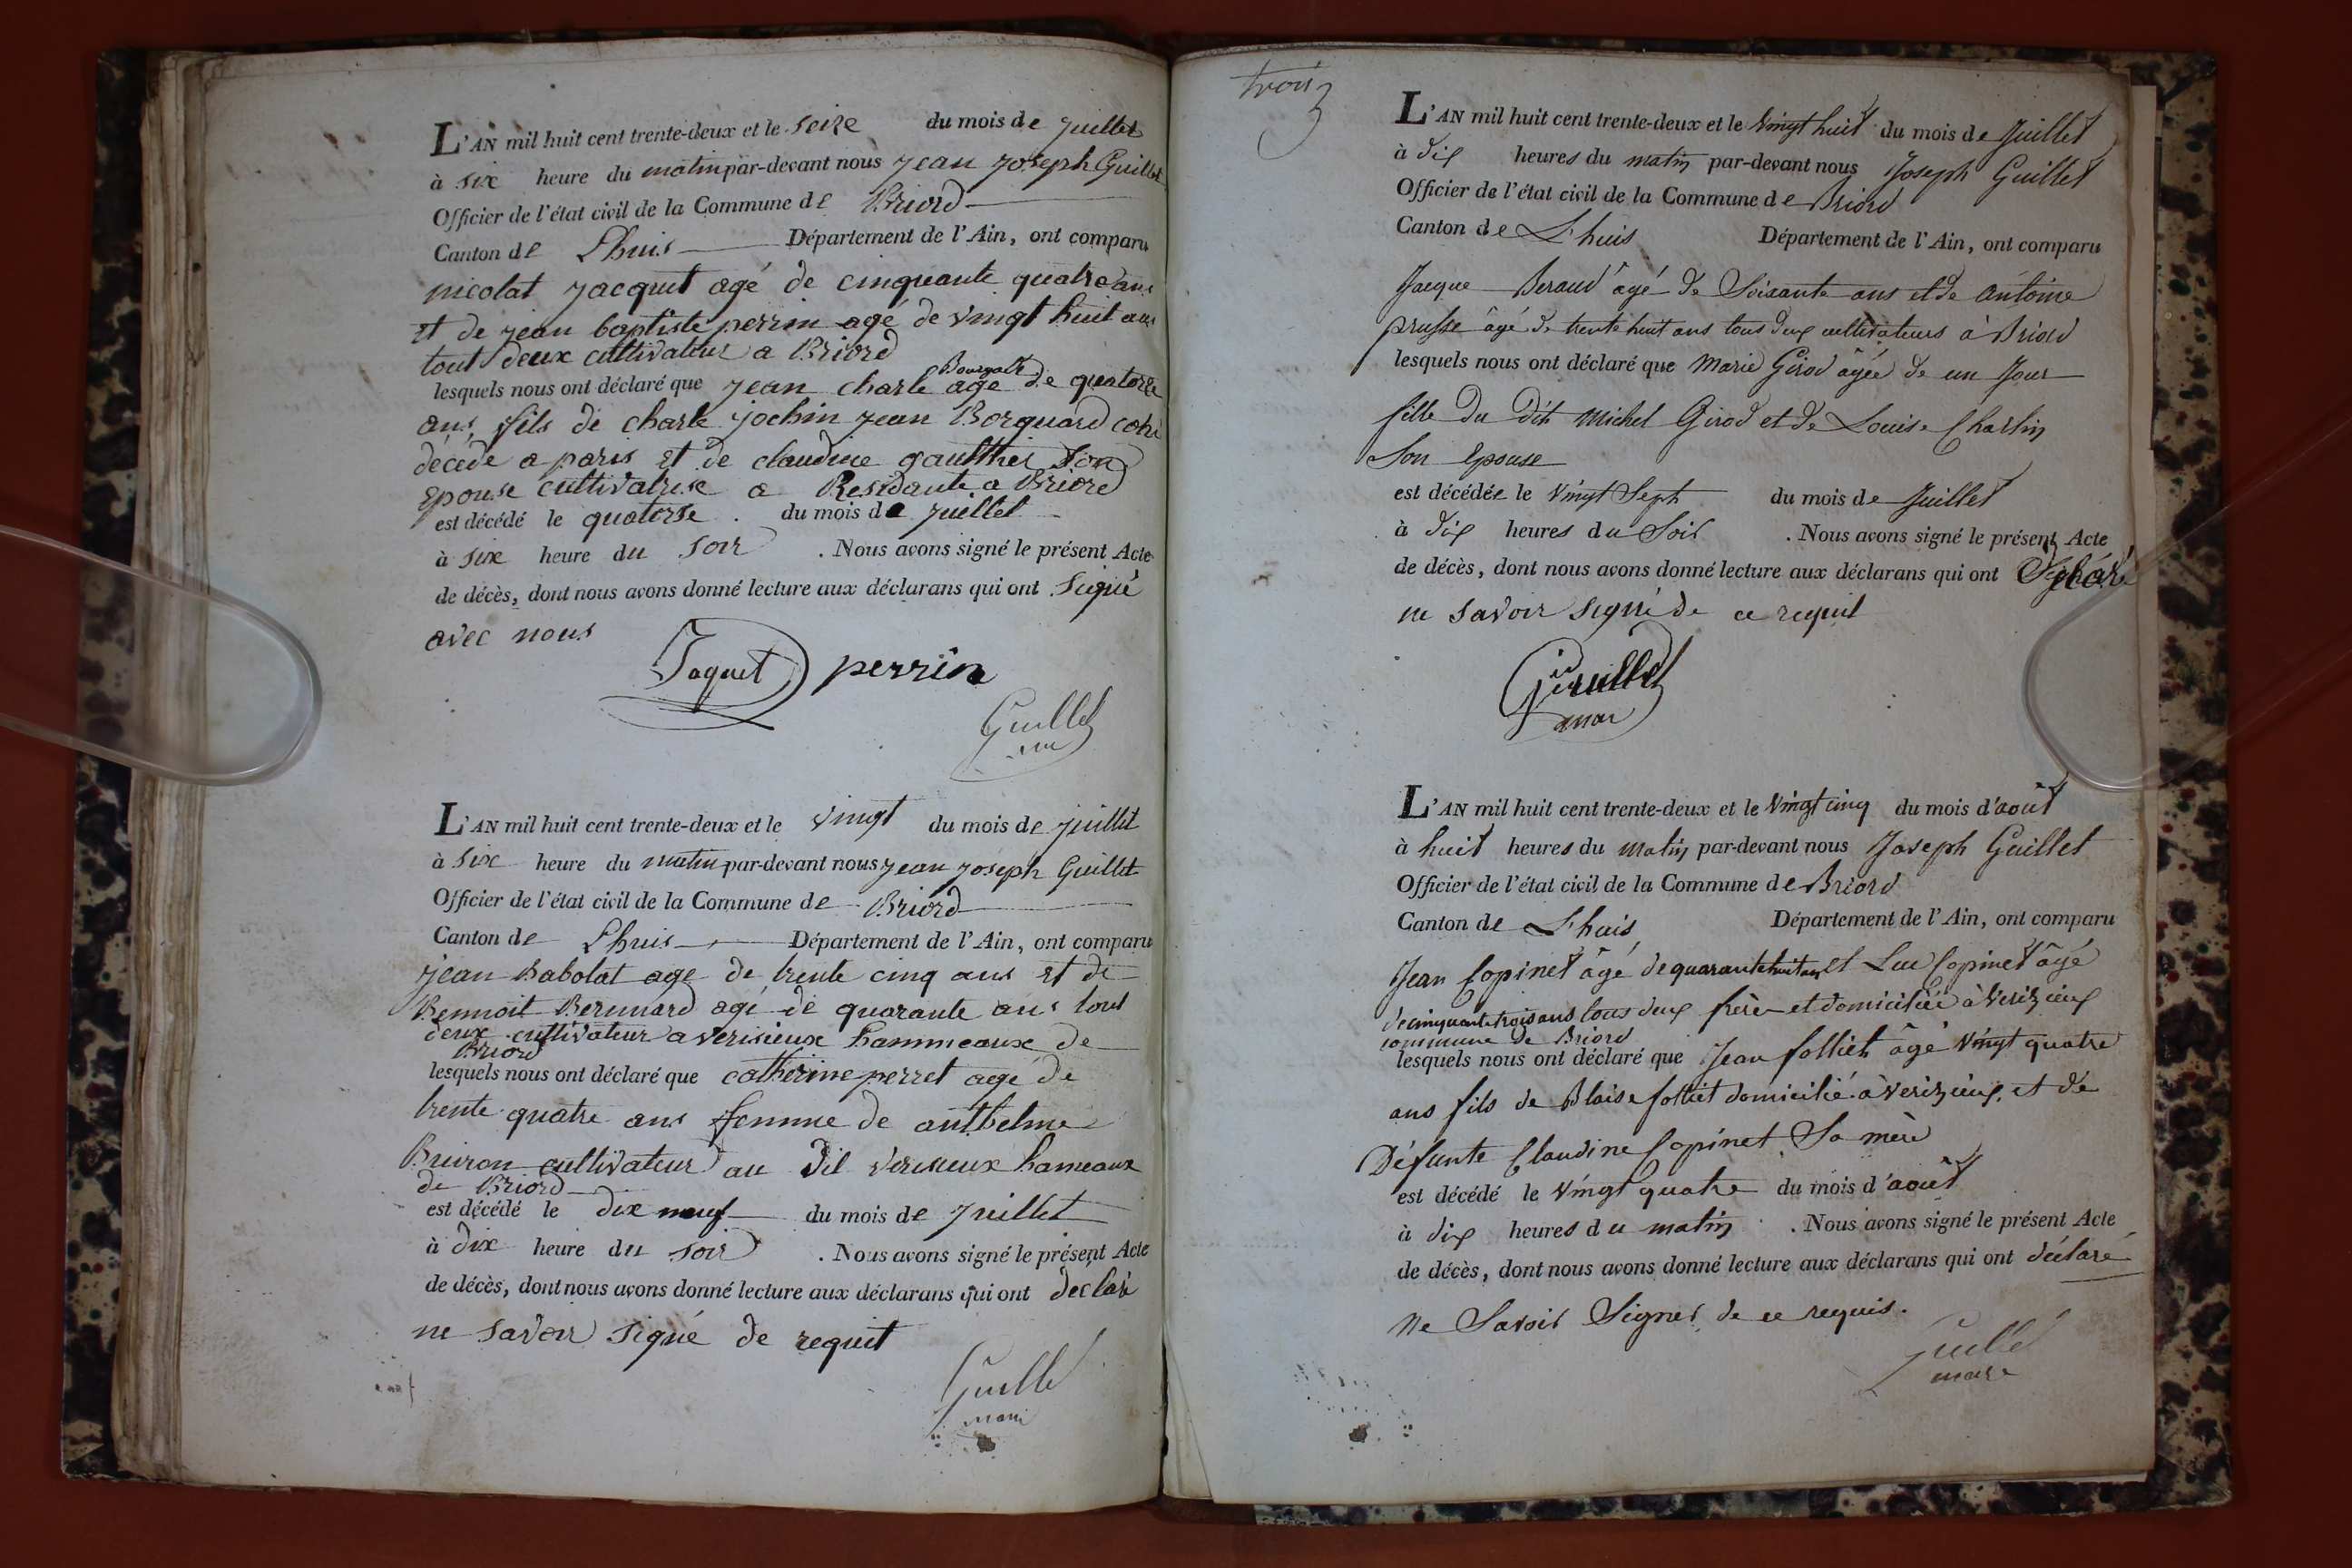 L'AN mil huit cent trente-deux et le seize du mois de juillet
à six heure du matin par-devant nous jean joseph Guillet
Officier de l'état civil de la Commune de Briord
Canton de Lhuis Département de l'Ain, ont comparu
nicolat jacquet agé de cinquante quatre ans
et de jean baptiste perrin agé de vingt huit ans
tout deux cultivateur a Briord
lesquels nous ont déclaré que jean charle age de quatorze
ans fils de charle jochin jean Borquard
décédé a paris et de claudine gaulthier son
Epouse cultivatrise a Residante a Briord
est décédé le quatorse . du mois de juillet
à six heure du soir . Nous avons signé le présent Acte
de décès, dont nous avons donné lecture aux déclarans qui ont signé
avec nous
Jaquet perrin
Guillet
L'AN mil huit cent trente-deux et le vingt du mois de juillet
à six heure du matin par-devant nous jean joseph Guillet
Officier de l'état civil de la Commune de Briord
Canton de Lhuis Département de l'Ain, ont comparu
jean Babolat age de trente cinq ans et de
Bennoit Bernnard agé de quarante ans tout
deux cultivateur a verisieux hammeaux de
Briord
lesquels nous ont déclaré que catherine perret agé de
trente quatre ans femme de anthelme
Buiron cultivateur au dit verisieux hameaux
de Briord
est décédé le dix neuf du mois de juillet
à dix heure du soir . Nous avons signé le présent Acte
de décès, dont nous avons donné lecture aux déclarans qui ont declaré
ne savoir signé de requit
Guillet
maire
trois 3
L'AN mil huit cent trente-deux et le vingt huit du mois de Juillet
à dix heures du matin par-devant nous Joseph Guillet
Officier de l'état civil de la Commune de Briord
Canton de L'huis Département de l'Ain, ont comparu
Jacque Beraud âgé de Soixante ans et de antoine
prusse âgé de trente huit ans tous deux cultivateurs à Briord
lesquels nous ont déclaré que Marie Girod âgée de un Jour
fille du dit Michel Girod et de Louise Charlin
Son Epouse
est décédée le vingt Sept du mois de Juillet
à dix heures du Soir . Nous avons signé le présent Acte
de décès, dont nous avons donné lecture aux déclarans qui ont
ne savoir signé de ce requit
Guillet
L'AN mil huit cent trente-deux et le vingt cinq du mois d'août
à huit heures du matin par-devant nous Joseph Guillet
Officier de l'état civil de la Commune de Briord
Canton de L'huis Département de l'Ain, ont comparu
Jean Copinet âgé de quarante huit ans et Luc Copinet âgé
de cinquante trois ans tous deux frère et domiciliée à verizieux
commune de Briord
lesquels nous ont déclaré que Jean folliet âgé vingt quatre
ans fils de Blaise folliet domicilié à verizieux, et de
Défunte Claudine Copinet Sa mère
est décédé le vingt quatre du mois d'août
à dix heures du matin . Nous avons signé le présent Acte
de décès, dont nous avons donné lecture aux déclarans qui ont déclaré
Ne Savoir Signer de ce requis.
Guillet
maire